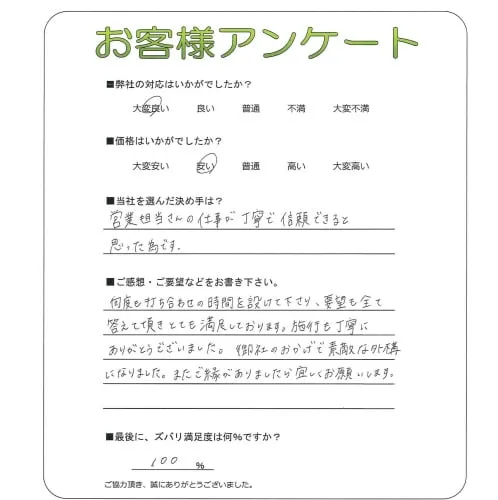 お客様アンケート
■弊社の対応はいかがでしたか？
大変良い 良い 普通 不満 大変不満
■価格はいかがでしたか？
大変安い 安い 普通 高い 大変高い
■当社を選んだ決め手は？
営業担当さんの仕事が丁寧で信頼できると
思った為です.
■ご感想・ご要望などをお書き下さい。
何度も打ち合わせの時間を設けて下さり、要望も全て
答えて頂きとても満足しております。施行も丁寧に
ありがとうございました。御社のおかげで素敵な外構
になりました。またご縁がありましたら宜しくお願いします。
■最後に、ズバリ満足度は何%ですか？
100 %
ご協力頂き、誠にありがとうございました。